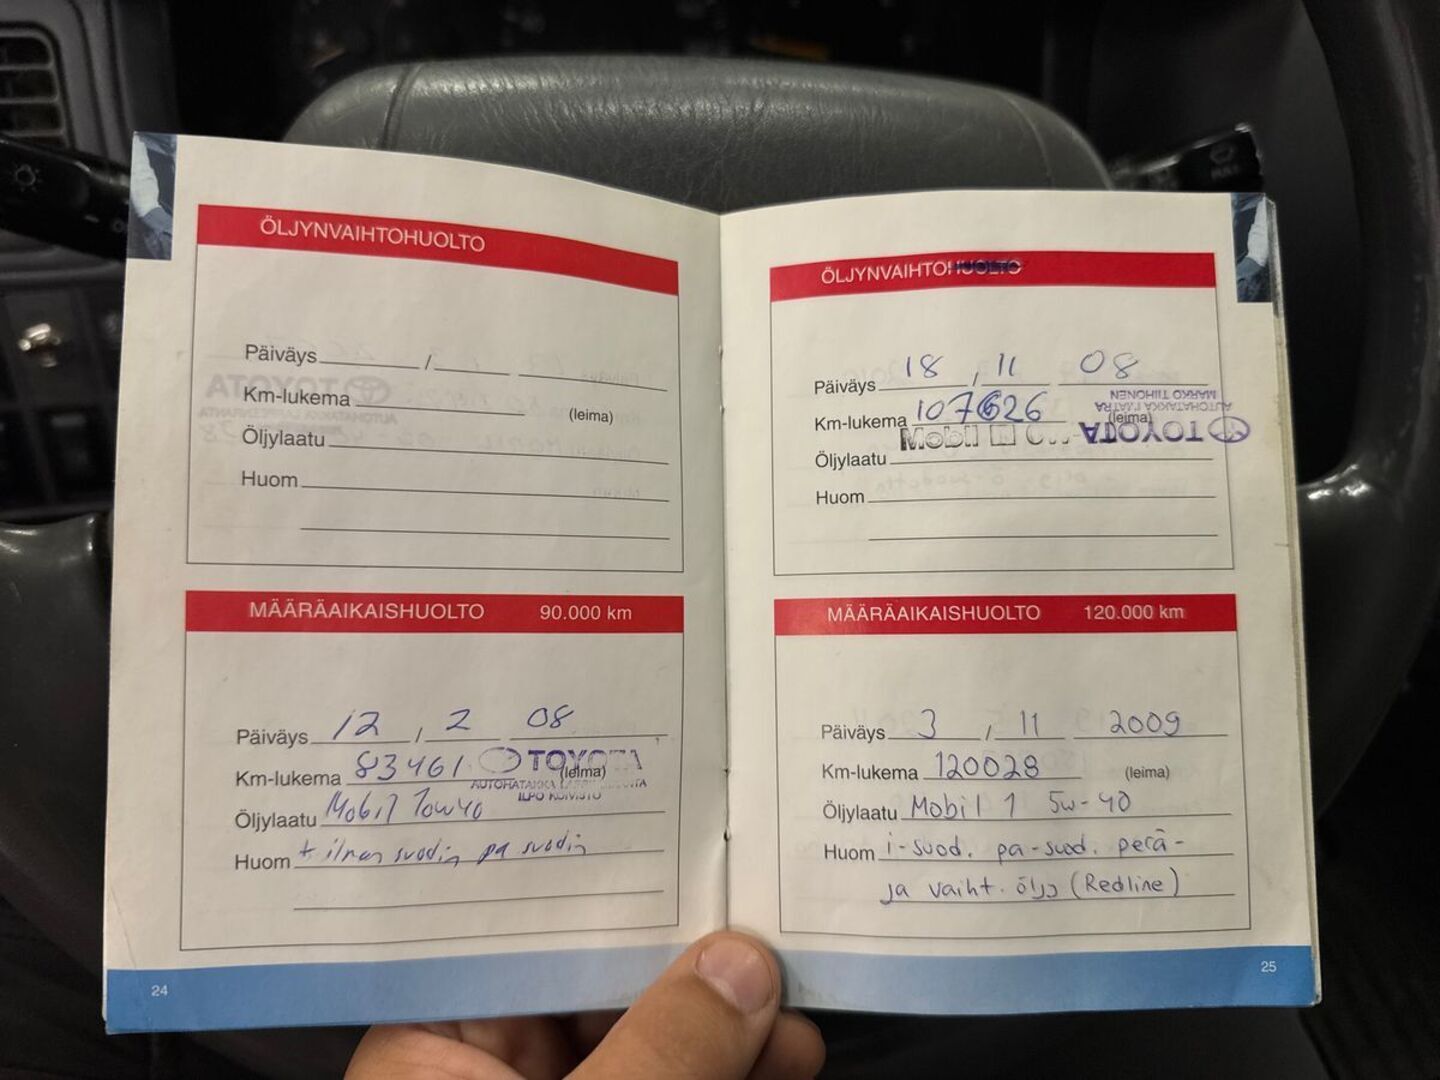 ÖLJYNVAIHTOHUOLTO
Päiväys / 
Km-lukema (leima)
Öljylaatu
Huom
MÄÄRÄAIKAISHUOLTO 90.000 km
Päiväys 12 / 2 08
Km-lukema 83461 (leima)
TOYOTA
AUTOHATAKKA
ILPO KOIVISTO
Öljylaatu Mobil 10W40
Huom + ilman suodin pa suodin
24
ÖLJYNVAIHTOHUOLTO
Päiväys 18 / 11 08
Km-lukema 107626 (leima)
TOYOTA
AUTOHATAKKA IMATRA
MARKO TIIHONEN
Öljylaatu Mobil
Huom
MÄÄRÄAIKAISHUOLTO 120.000 km
Päiväys 3 / 11 2009
Km-lukema 120028 (leima)
Öljylaatu Mobil 1 5w-40
Huom i-suod. pa-suod. perä-
ja vaiht. öljy (Redline)
25